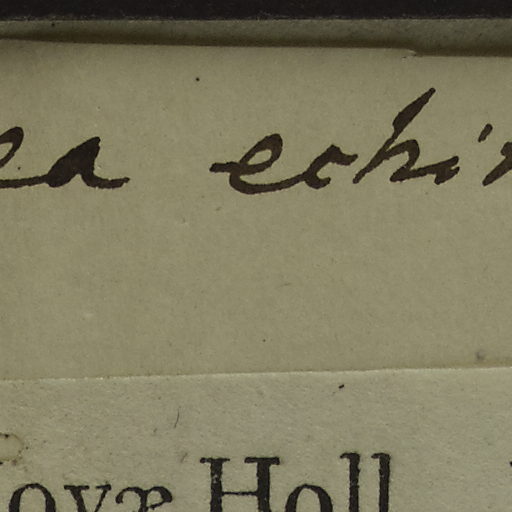 ea echin
ovæ Holl